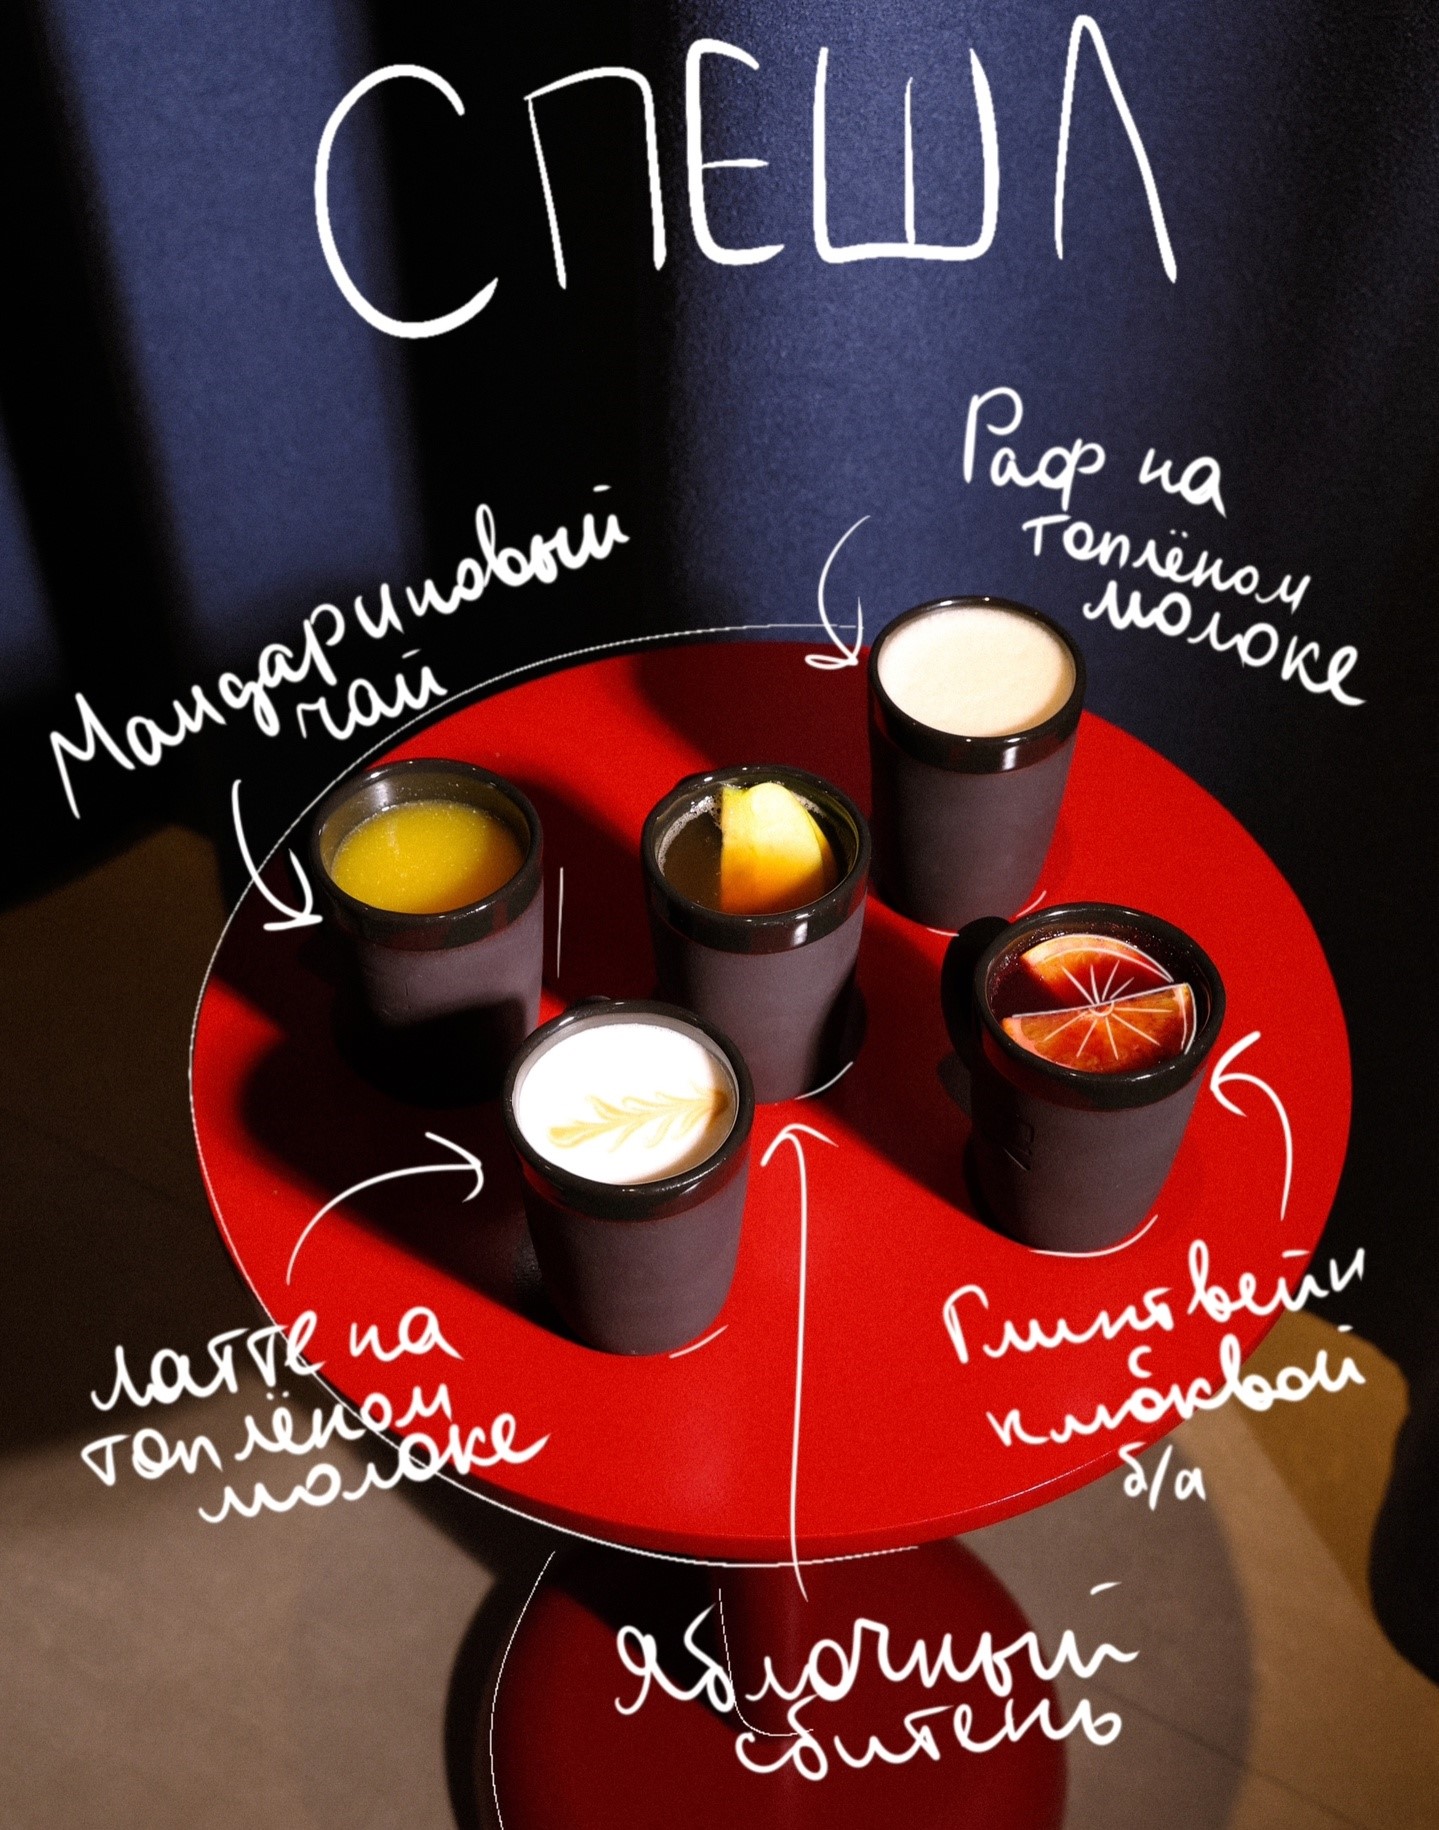 СПЕШЛ
Раф на
топлёном
молоке
Мандариновый
чай
Латте на
топлёном
молоке
Глинтвейн
с
клюквой
б/а
Яблочный
сбитень